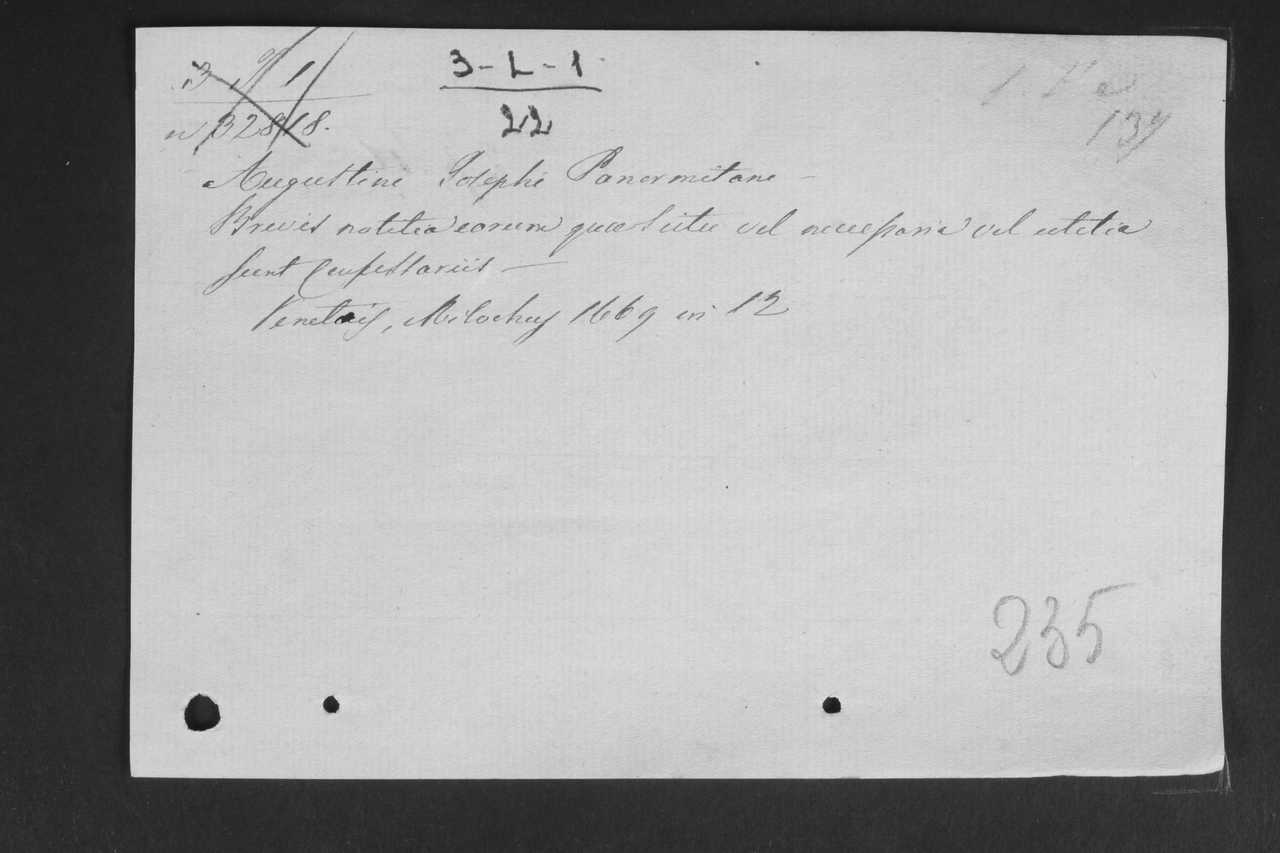 3-L-1
22
n 32818.
139
Augustini Josephi Panormitani —
Brevis notitia eorum quae scitu vel necessaria vel utilia
sunt Confessariis —
Venetiis, Milochus 1669 in 12
235